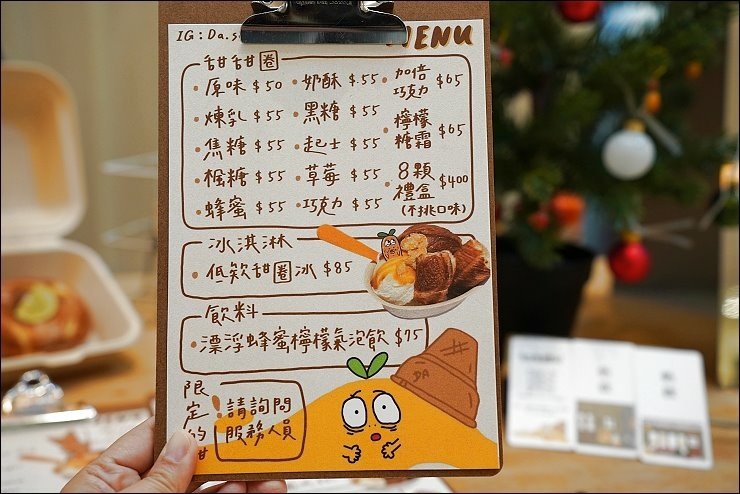 IG：Da.s
MENU
甜甜圈
原味 $50
煉乳 $55
焦糖 $55
楓糖 $55
蜂蜜 $55
奶酥 $55
黑糖 $55
起士 $55
草莓 $55
巧克力 $55
加倍
巧克力 $65
檸檬
糖霜 $65
8顆
禮盒 $400
(不挑口味)
冰淇淋
低欸甜圈冰 $85
飲料
漂浮蜂蜜檸檬氣泡飲 $75
限定的甜
請詢問
服務人員
DA